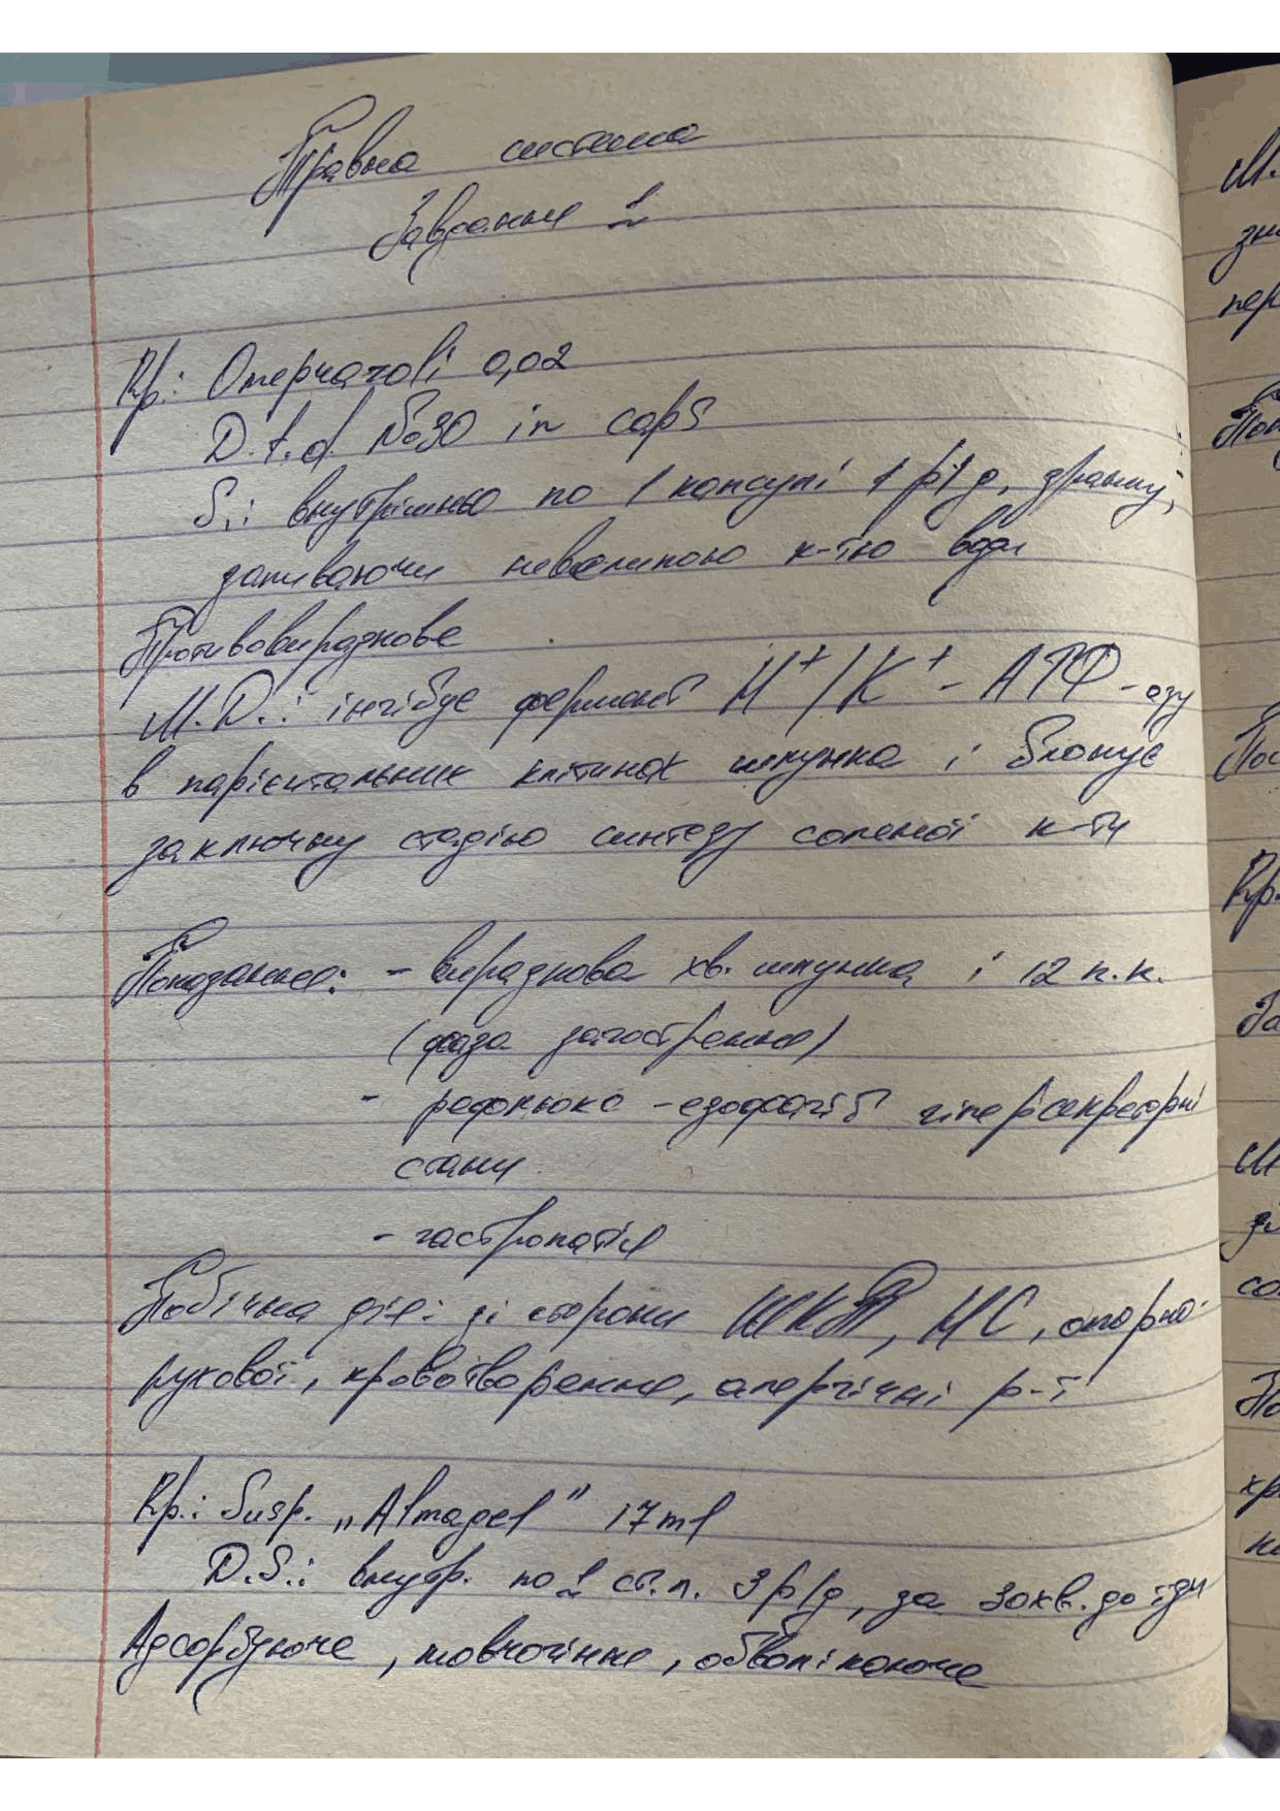 Травна система
Завдання 1
Rp.: Omeprazoli 0,02
D.t.d. №30 in caps
S.: внутрішньо по 1 капсулі 1 р/д, зранку,
запиваючи невеликою к-тю води
Противовиразкове
М.Д.: інгібує фермент H⁺/K⁺ - АТФ-азу
в парієнтальних клітинах шлунка і блокує
заключну стадію синтезу соленої к-ти
Показання: - виразкова хв. шлунка і 12 п.к.
(фаза загострення)
- рефлюкс-езофагіт гіперсекреторні
стани
- гастропатія
Побічна дія: зі сторони ШКТ, НС, опорно-
рухової, кровотворення, алергічні р-ї
Rp.: Susp. „Almagel" 17ml
D.S.: внутр. по 1 ст.л. 3 р/д, за 30хв. до їди
Адсорбуюче, жовчогінне, обволікаюче
М.
зни
пер
Rp.
со
хр